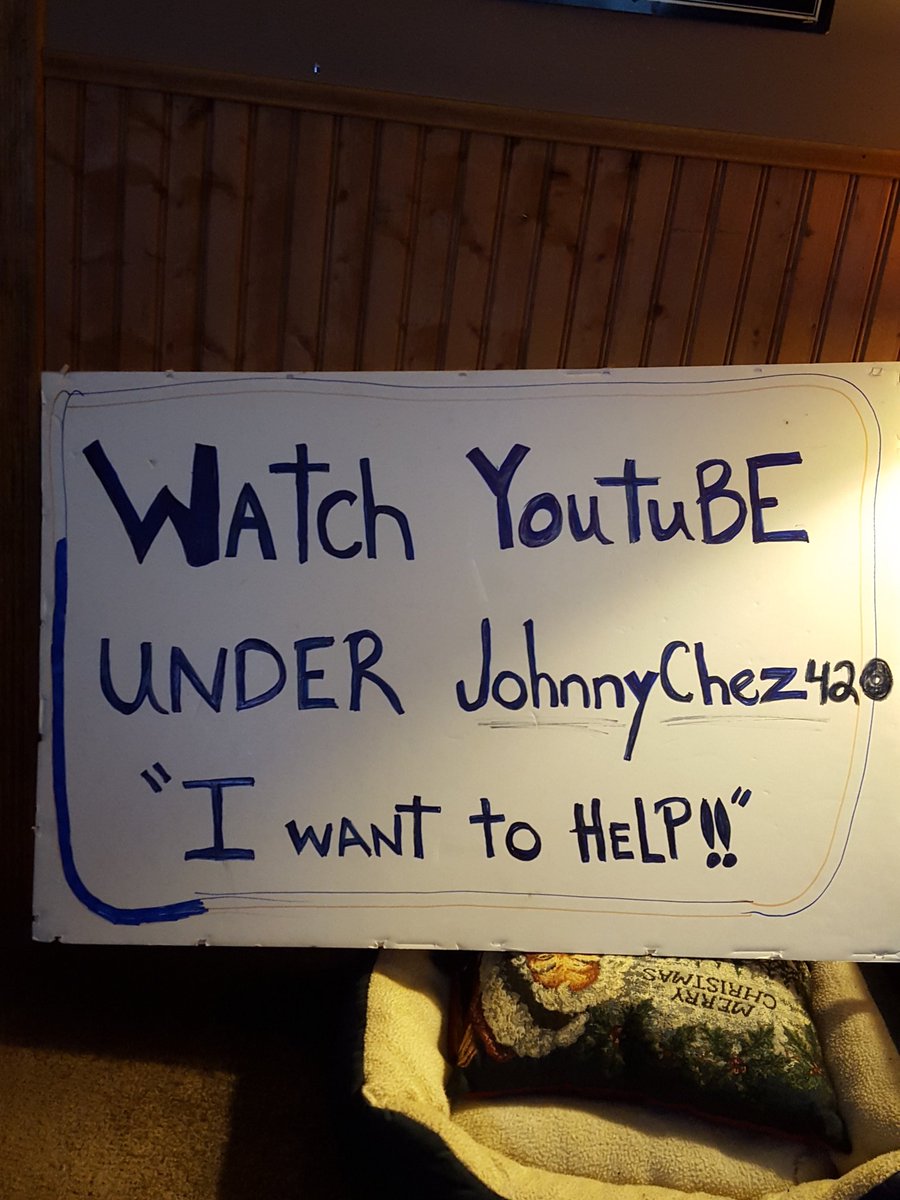 WAtch YoutuBE
UNDER JohnnyChez420
"I WANT to HELP!!"
MERRY
CHRISTMAS